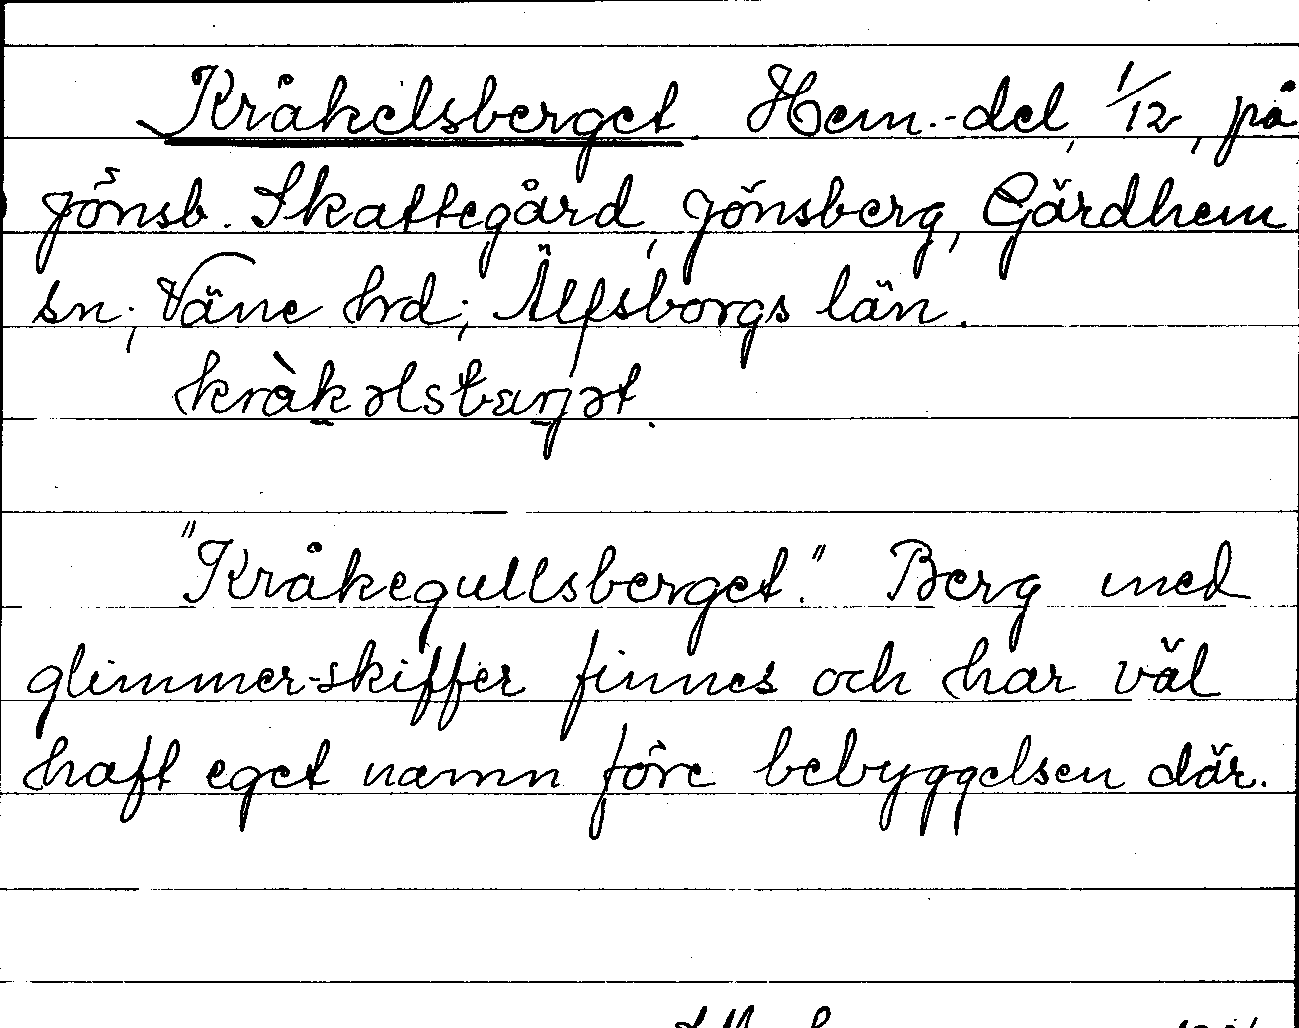 Kråkelsberget Hem.-del, 1/12, på
Jönsb. Skattegård, Jönsberg, Gärdhem
sn; Väne hrd; Älfsborgs län.
kràkəlsbærjət.
"Kråkegullsberget." Berg med
glimmer-skiffer finnes och har väl
haft eget namn före bebyggelsen där.